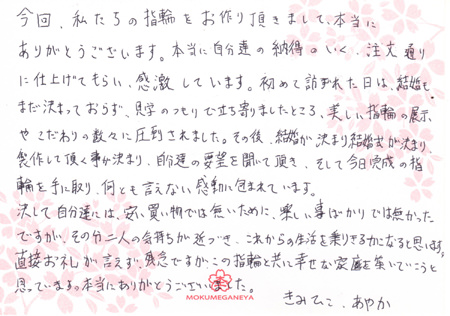 今回、私たちの指輪をお作り頂きまして、本当に
ありがとうございます。本当に自分達の納得のいく、注文通り
に仕上げてもらい、感激しています。初めて訪れた日は、結婚も
まだ決まっておらず、見学のつもりで立ち寄りましたところ、美しい指輪の展示
やこだわりの数々に圧倒されました。その後、結婚が決まり結婚式が決まり、
製作して頂く事が決まり、自分達の要望を聞いて頂き、そして今日完成の指
輪を手に取り、何とも言えない感動に包まれています。
決して自分達には、安い買い物では無いために、楽しい事ばかりでは無かった
ですが、その分二人の気持ちが近づき、これからの生活を乗りきる力になると思います。
直接お礼が言えず、残念ですが、この指輪と共に幸せな家庭を築いていこうと
思っています。本当にありがとうございました。
MOKUMEGANEYA
きみひこ、あやか